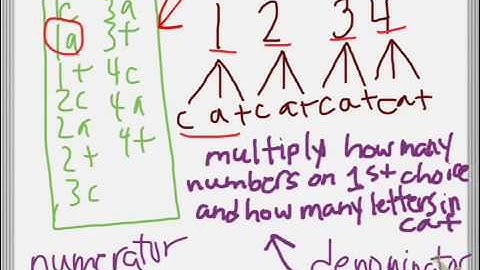 c 3a
1a 3t
1t 4c
2c 4a
2a 4t
2t
3c
1 2 3 4
c a t c a t c a t c a t
multiply how many
numbers on 1st choice
and how many letters in
cat
numerator denominator